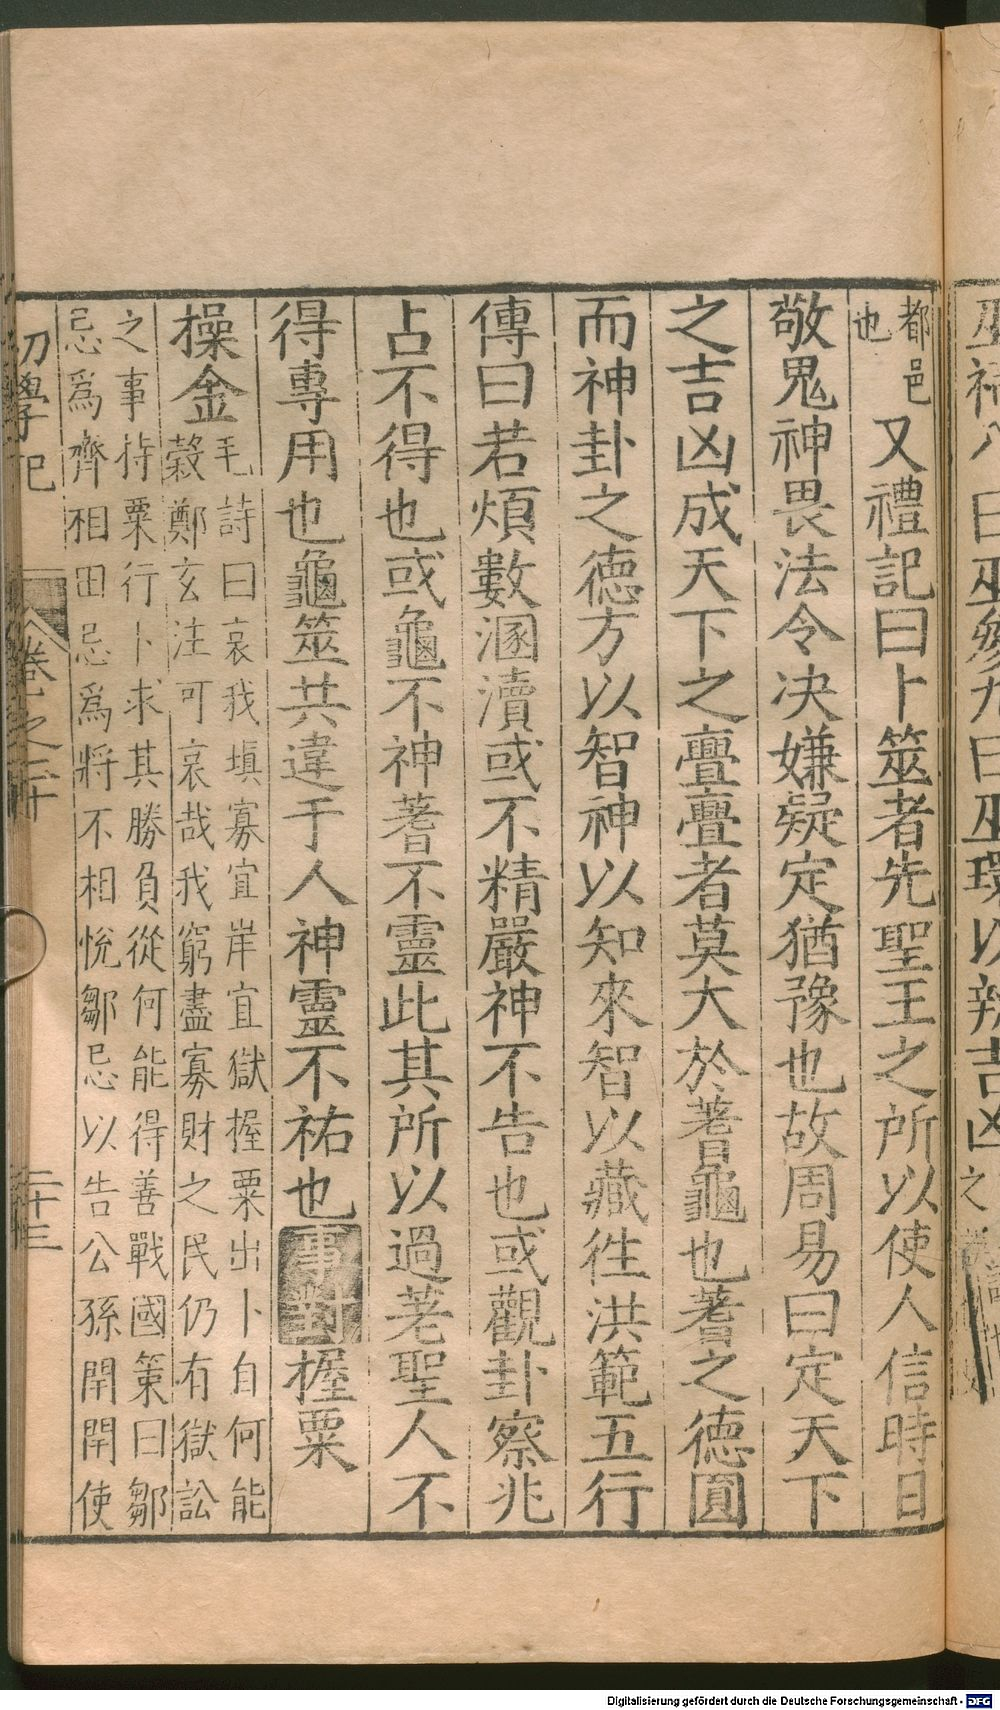 都邑
也
又禮記曰卜筮者先聖王之所以使人信時日
敬鬼神畏法令決嫌疑定猶豫也故周易曰定天下
之吉凶成天下之亹亹者莫大於蓍龜也蓍之德圓
而神卦之德方以智神以知來智以藏徃洪範五行
傳曰若煩數溷瀆或不精嚴神不告也或觀卦察兆
占不得也或龜不神蓍不靈此其所以過老聖人不
得專用也龜筮共違于人神靈不祐也事對握粟
操金
毛詩曰哀我填寡宜岸宜獄握粟出卜自何能
穀鄭玄注可哀哉我窮盡寡財之民仍有獄訟
之事持粟行卜求其勝負從何能得善戰國策曰鄒
忌為齊相田忌為將不相悅鄒忌以告公孫閈閈使
初學記 卷之二十 二十三
巫祠八曰巫參九曰巫環以辨吉凶之
Digitalisierung gefördert durch die Deutsche Forschungsgemeinschaft - DFG